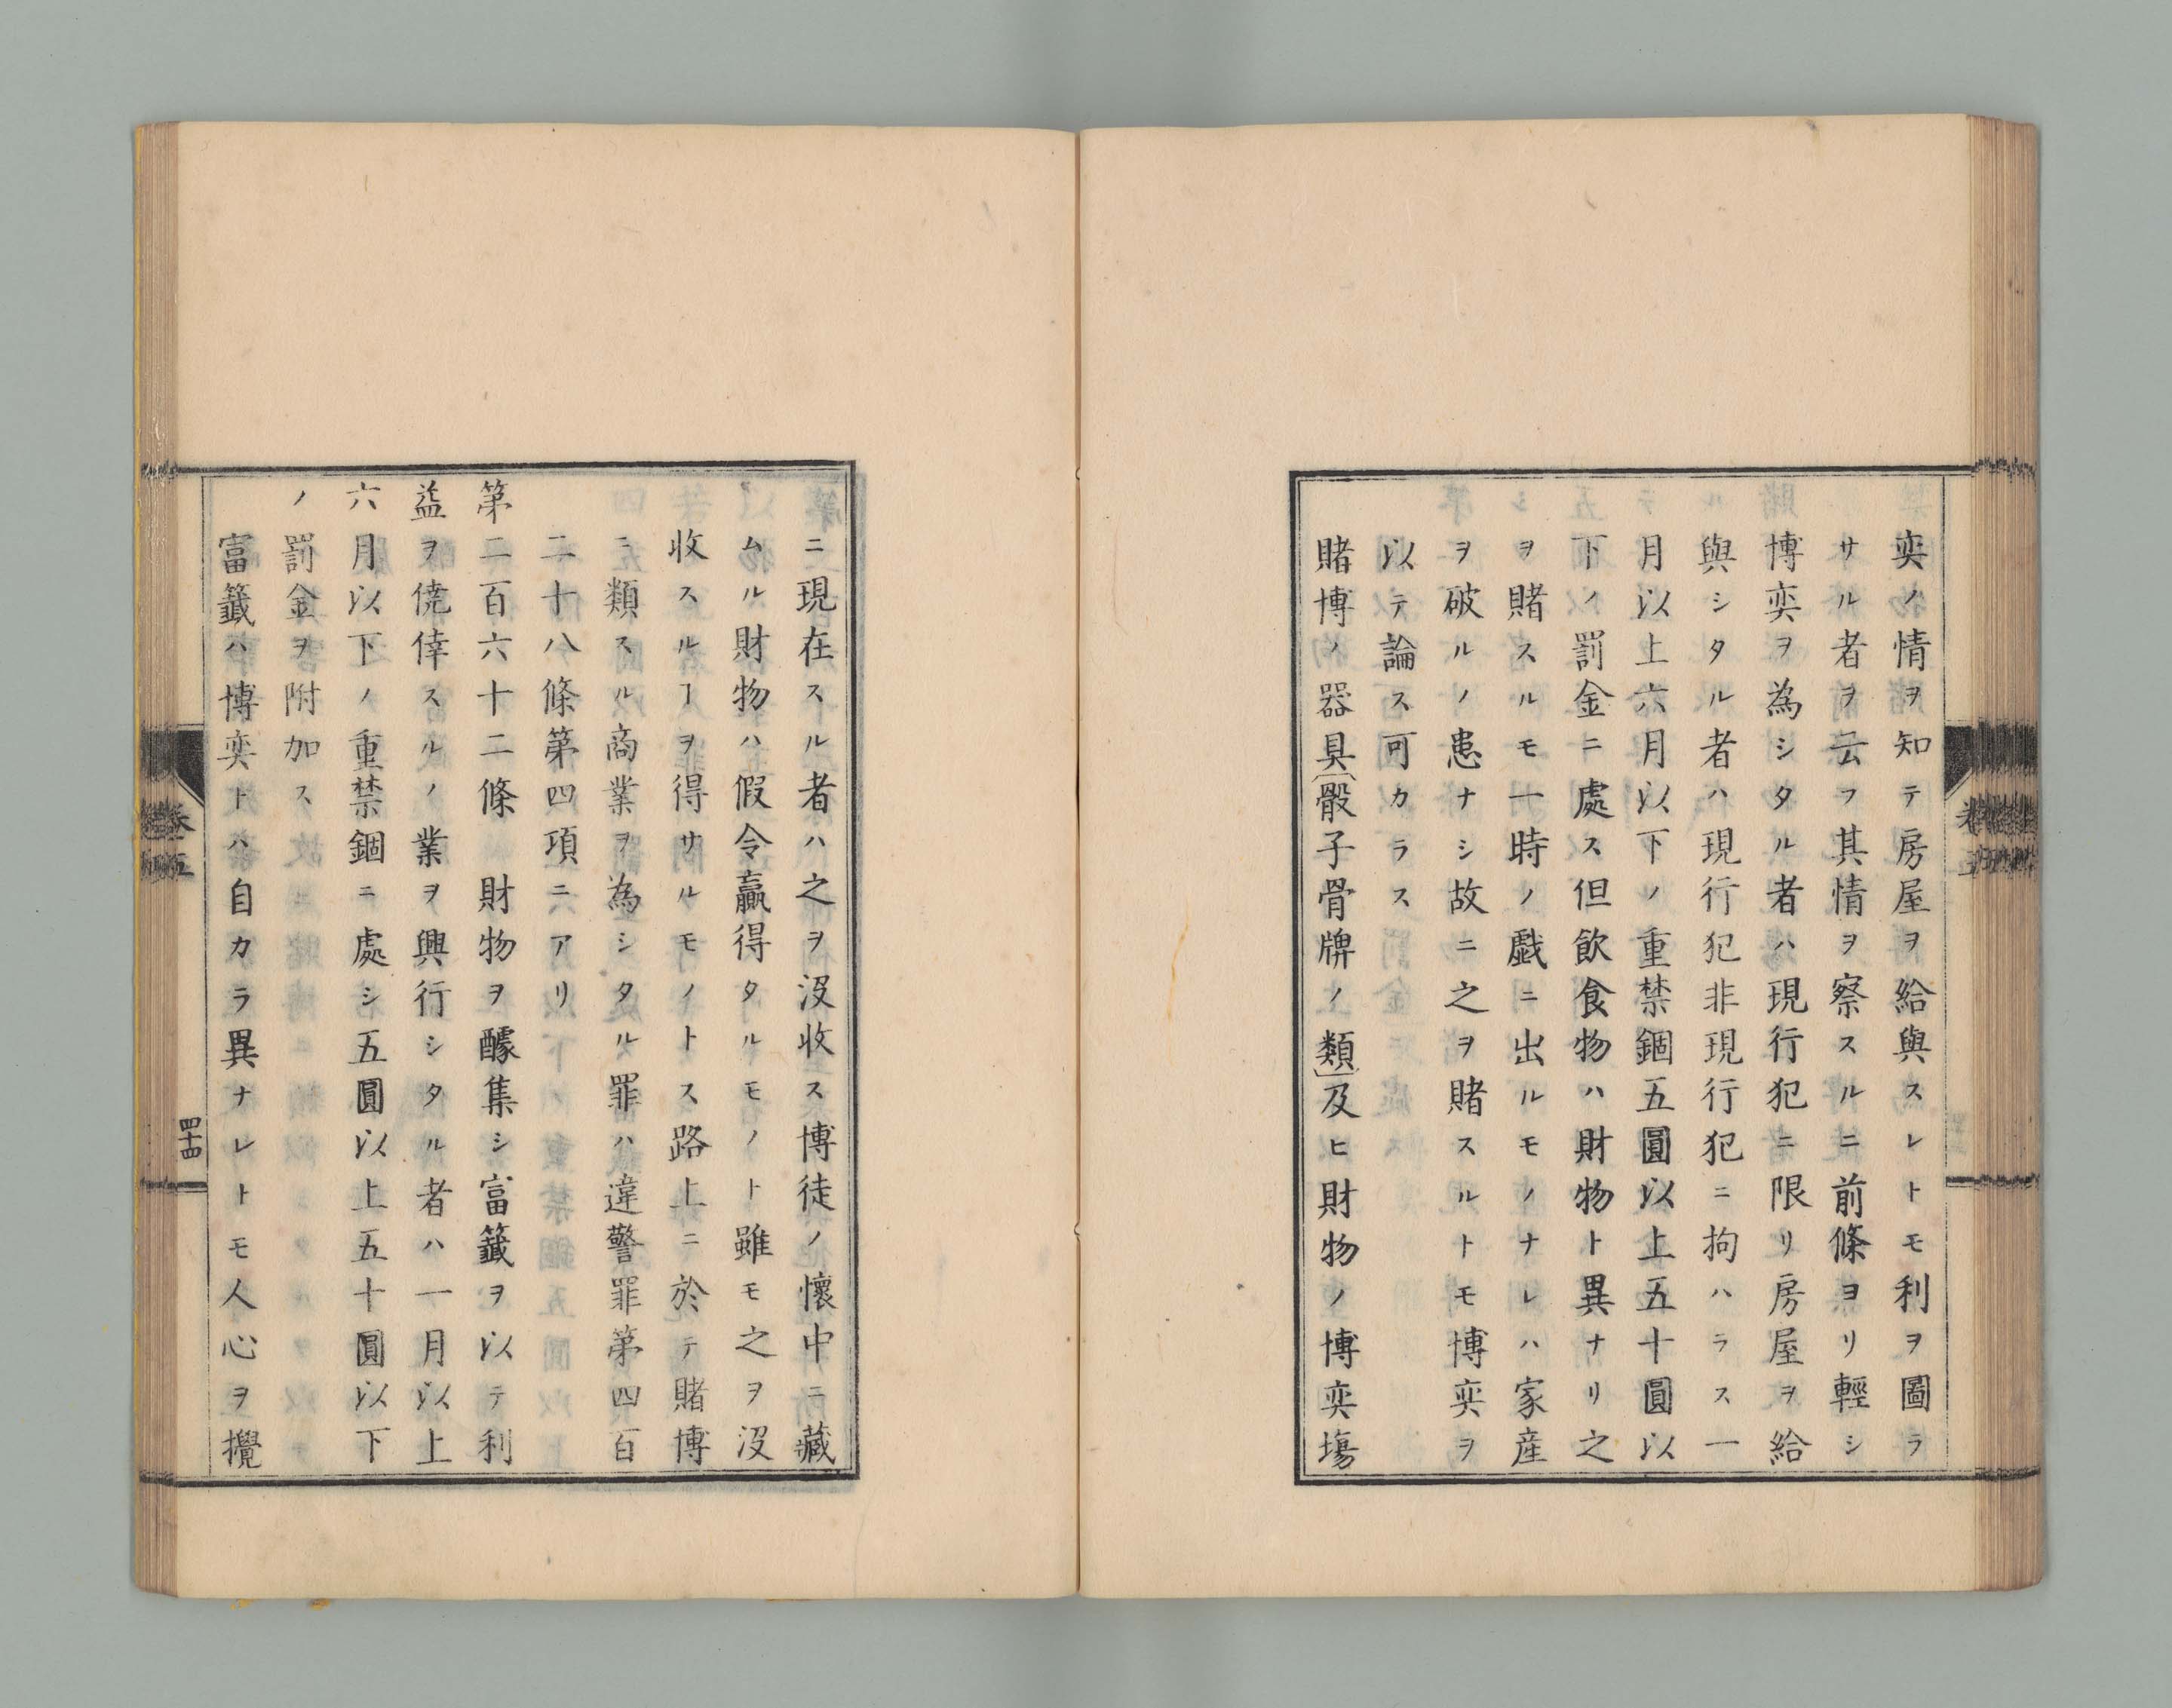 奕ノ情ヲ知テ房屋ヲ給與スレトモ利ヲ圖ラ
サル者ヲ云フ其情ヲ察スルニ前條ヨリ輕シ
博奕ヲ為シタル者ハ現行犯ニ限リ房屋ヲ給
與シタル者ハ現行犯非現行犯ニ拘ハラス一
月以上六月以下ノ重禁錮五圓以上五十圓以
下ノ罰金ニ處ス但飲食物ハ財物ト異ナリ之
ヲ賭スルモ一時ノ戯ニ出ルモノナレハ家産
ヲ破ルノ患ナシ故ニ之ヲ賭スルトモ博奕ヲ
以テ論ス可カラス
賭博ノ器具(骰子骨牌ノ類)及ヒ財物ノ博奕塲
ニ現在スル者ハ之ヲ沒收ス博徒ノ懷中ニ藏
ムル財物ハ假令贏得タルモノト雖モ之ヲ沒
收スルヿヲ得サルモノトス路上ニ於テ賭博
ニ類スル商業ヲ為シタル罪ハ違警罪第四百
二十八條第四項ニアリ
第二百六十二條 財物ヲ醵集シ富籤ヲ以テ利
益ヲ僥倖スルノ業ヲ興行シタル者ハ一月以上
六月以下ノ重禁錮ニ處シ五圓以上五十圓以下
ノ罰金ヲ附加ス
富籤ハ博奕トハ自カラ異ナレトモ人心ヲ攪
卷五
四十四